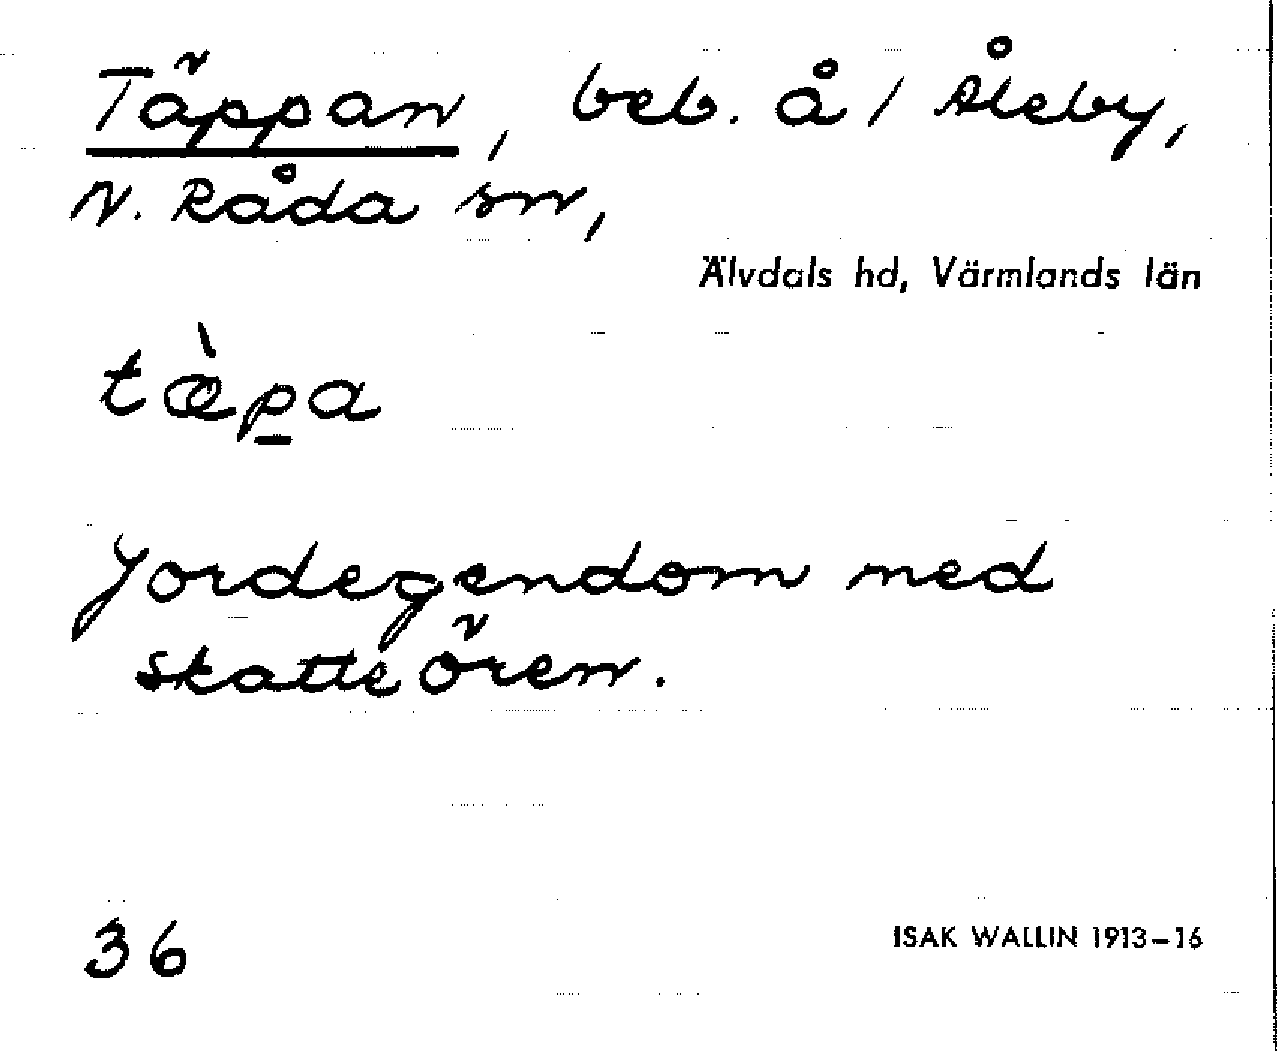 Täppan, beb. å / Åleby,
N. Råda sn,
Älvdals hd, Värmlands län
tæ̀p̲a
Jordegendom med
skatteören.
36
ISAK WALLIN 1913–16